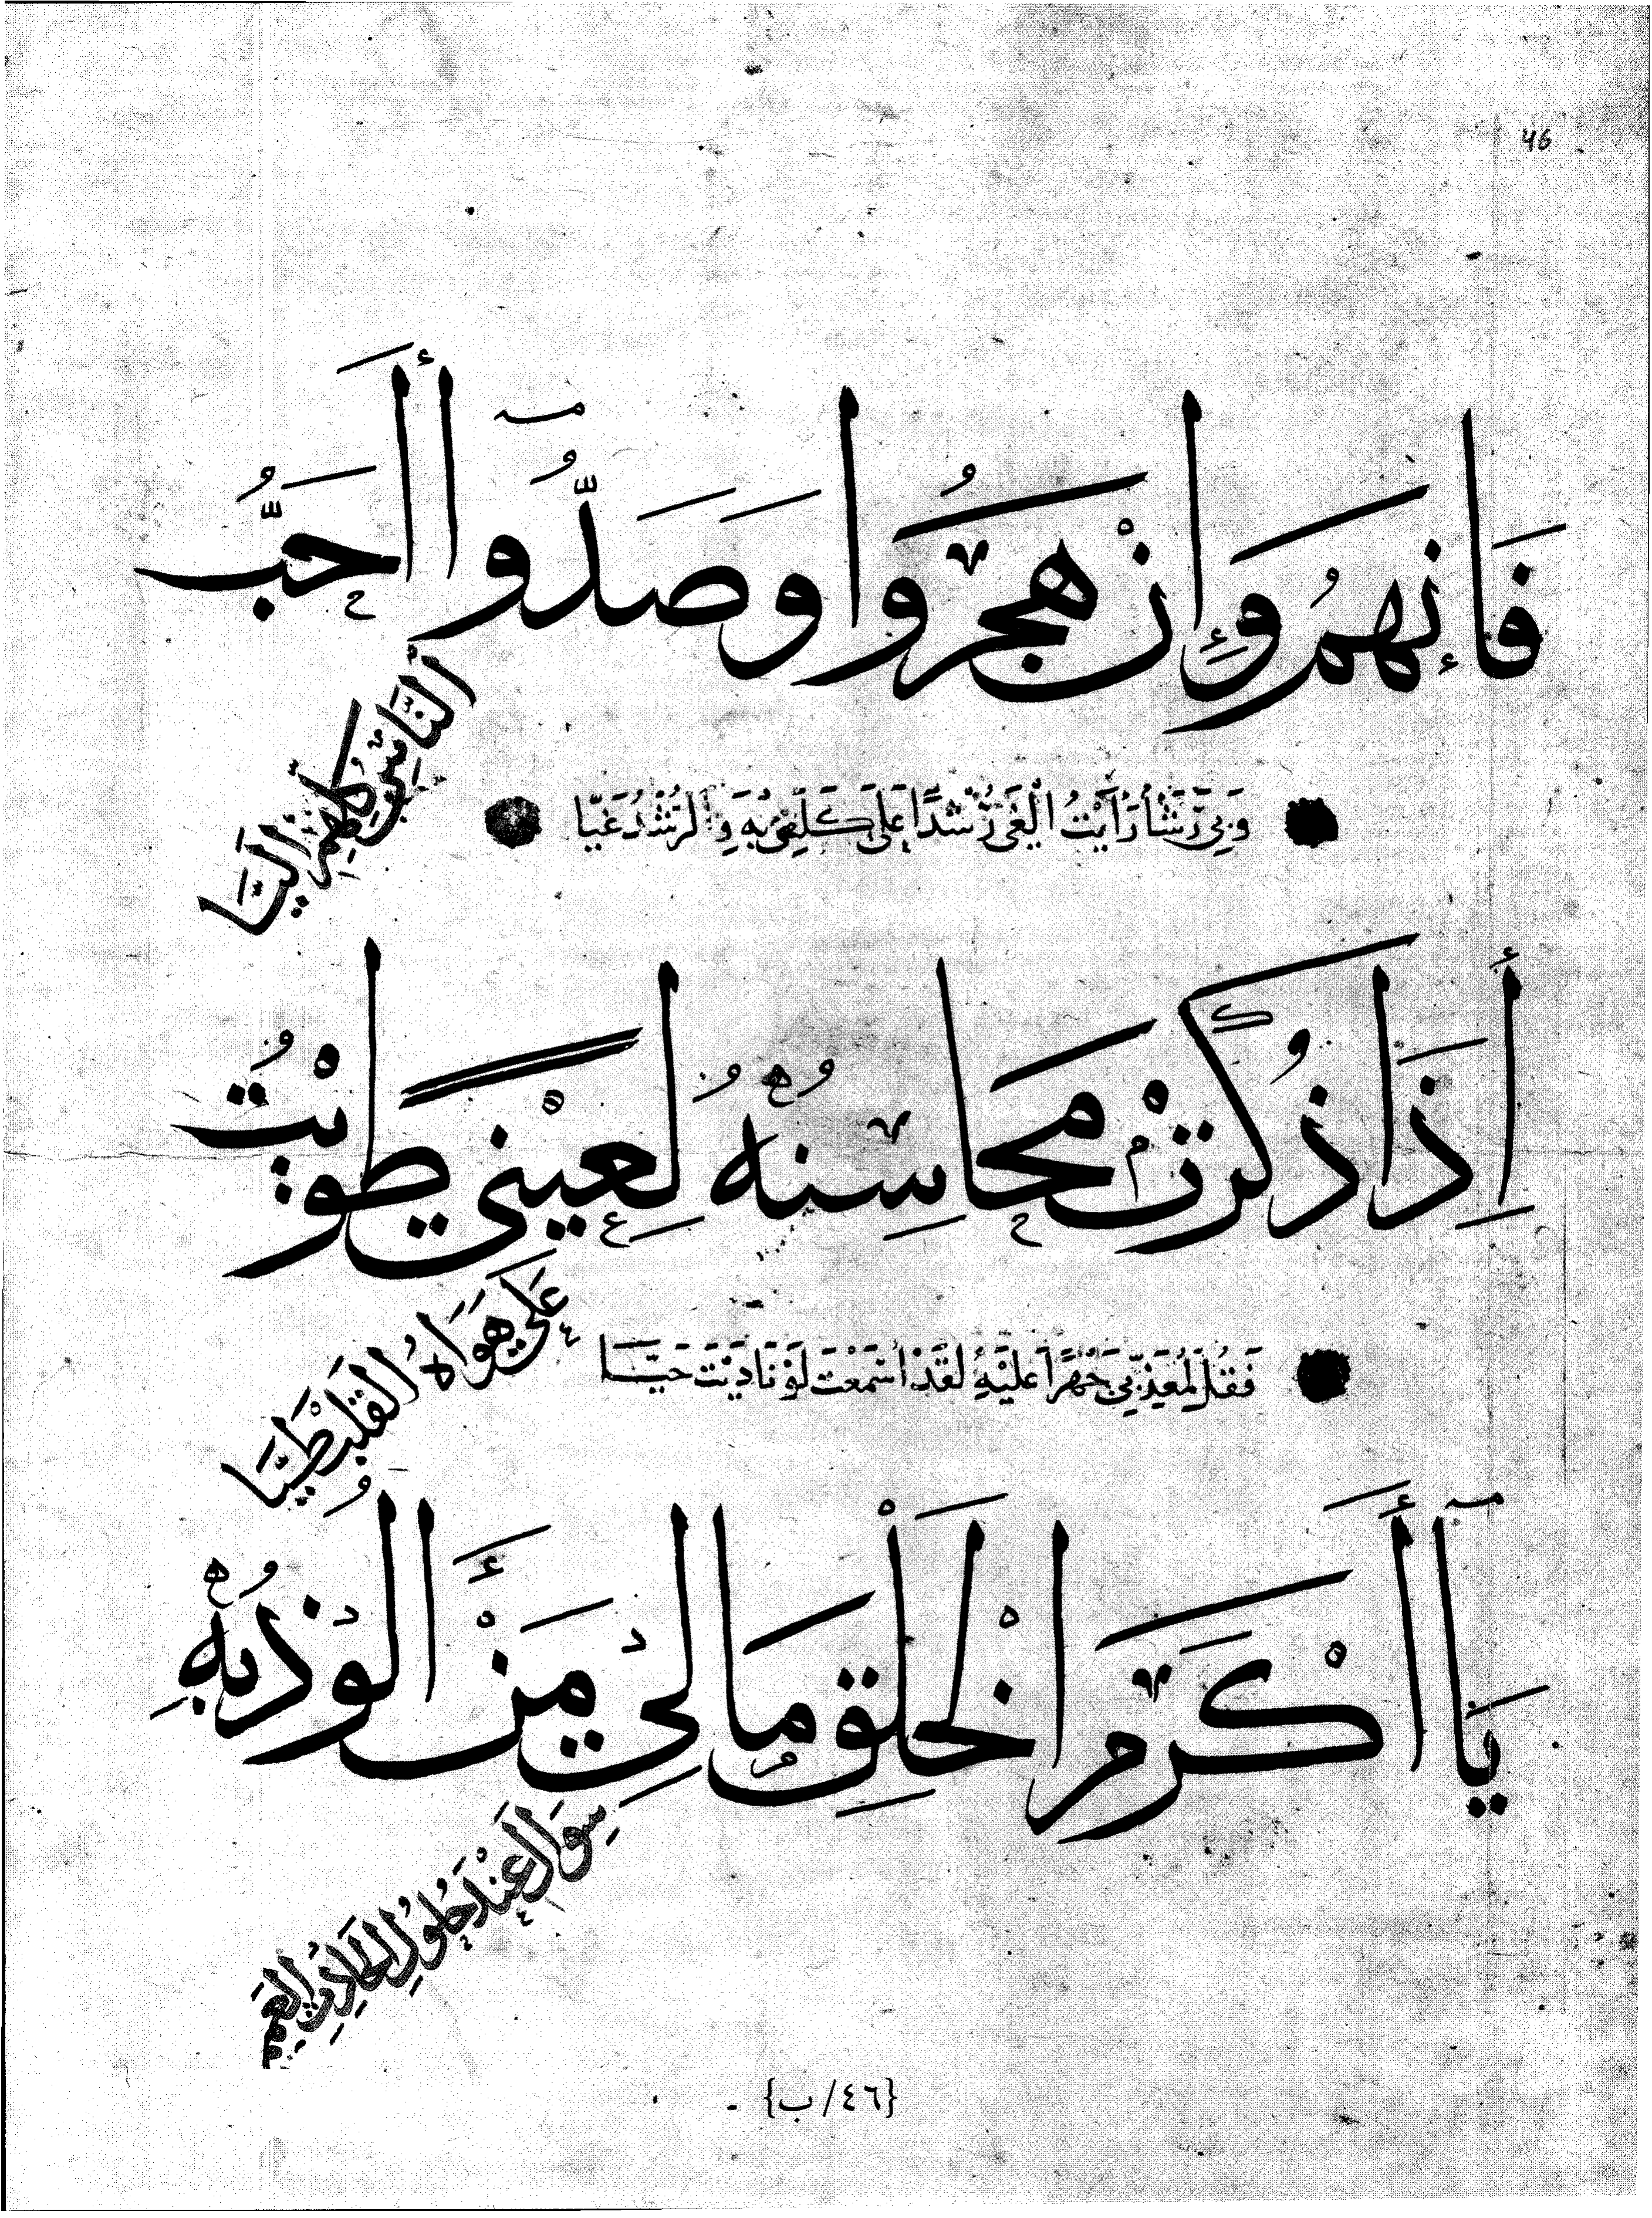 46
فَإِنهمُ وَإِنْ هجَرُوا وَصَدُّوا أَحَبُّ
النَّاسِ كُلِّهِمِ إِلَيَّا
وَبِي رَشَأٌ رَأَيْتُ الْغَيَّ رُشْدًا عَلَى كَلَفِي بِهِ وَالرُّشْدَ غَيَّا
إِذَا ذُكرَتْ مَحَاسِنُهُ لِعَيْنِي طَوَيْتُ
عَلَى هَوَاهُ الْقَلْبَ طَيَّا
فَقُلْ لِمُعَذِّبِي جَهْرًا عَلَيْهِ لَقَدْ أَسْمَعْتَ لَوْ نَادَيْتَ حَيَّا
يَا أَكْرَمَ الْخَلْقِ مَا لِي مَنْ أَلُوذُ بِهِ
سِوَاكَ عِنْدَ حُلُولِ الْحَادِثِ الْعَمَمِ
{٤٦/ب}